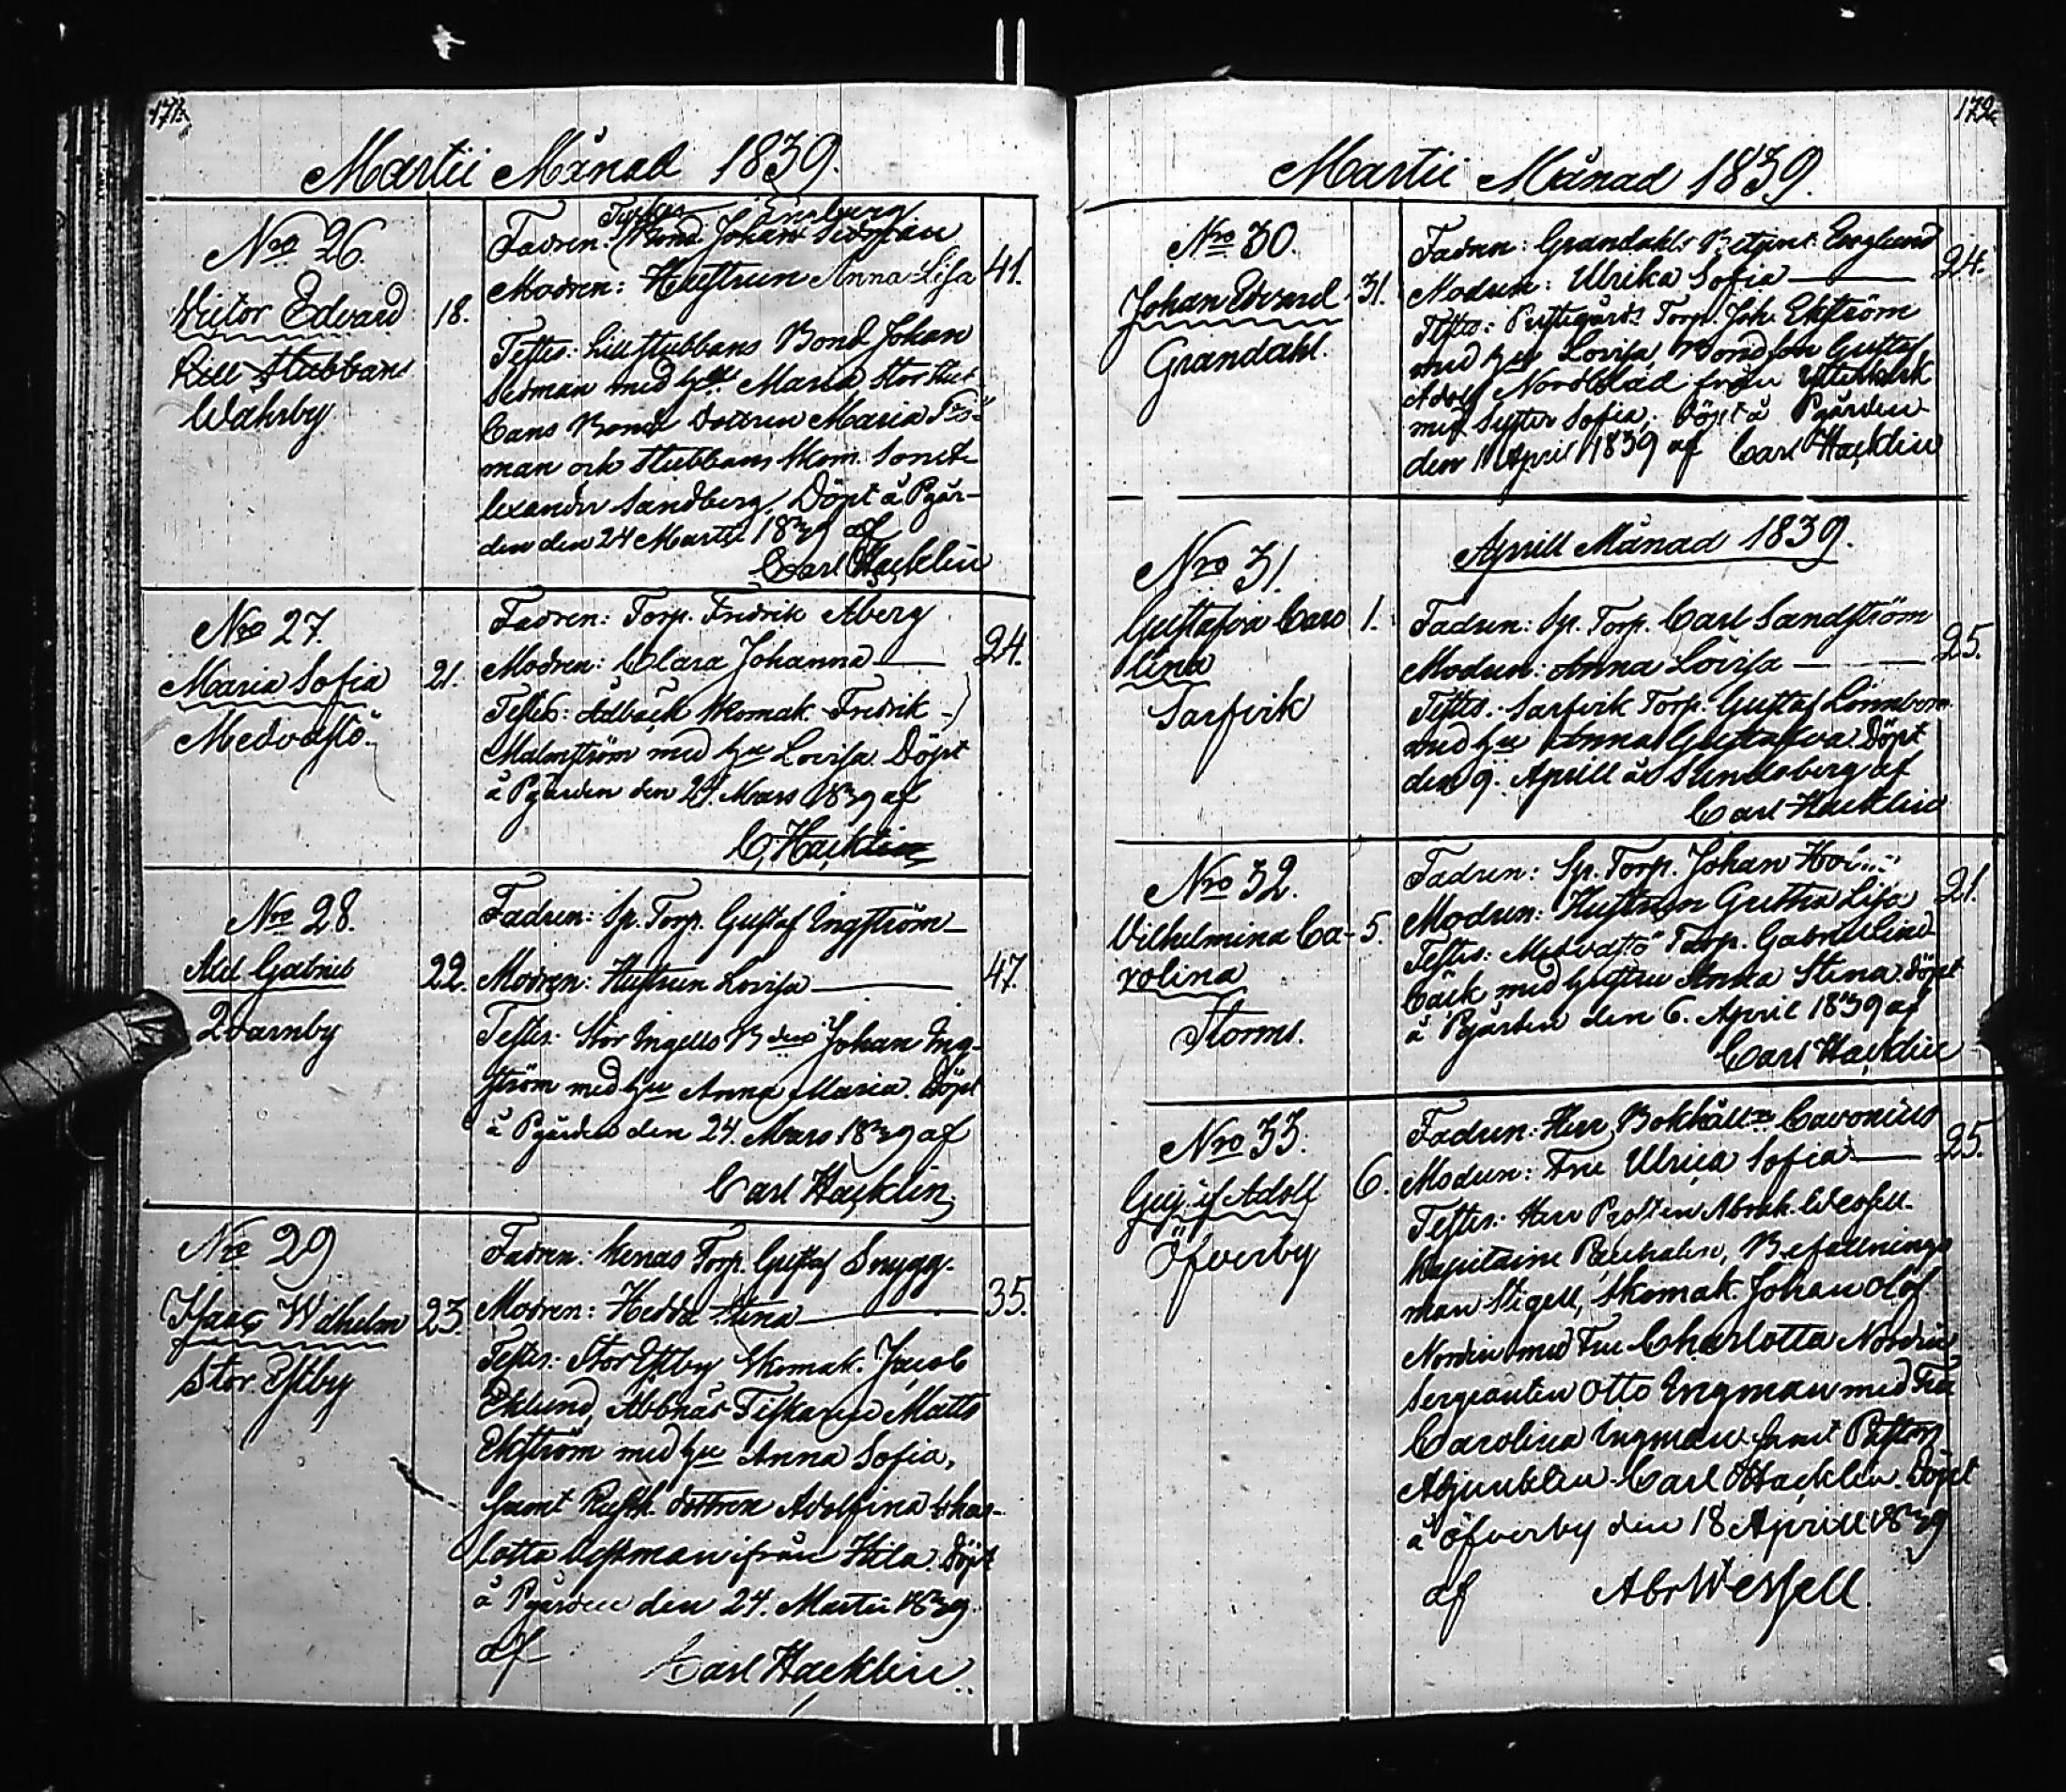 171.
Martii Månad 1839.
No 26.
Victor Edvard
Lill Stubbans
Wåhrby
18.
Torpar Åneberg
Fadren: Bond. Johan Sedman
Modren: Hustrun Anna Lisa
41.
Testes: Lillstubbans Bond Johan
Sedman med hu Maria Storstub-
bans Bond Dottren Maria Frö-
man och Stubbans Skom. Son A-
lexander Sandberg. Döpt å Pgår-
den den 24 Martii 1839 af
Carl Hacklin
No 27.
Maria Sofia
Medvastö.
21.
Fadren: Torp. Fredrik Åberg
Modren: Clara Johanna
24.
Testes: Ådbäck Skomak. Fredrik
Malmström med hu Lovisa. Döpt
å Pgården den 24. Mars 1839 af
C. Hacklin
No 28.
Axel Gabriel
Qvarnby
22.
Fadren: Sp. Torp. Gustaf Engström
Modren: Hustrun Lovisa
47.
Testes: Stor Ingells Bden Johan Eng-
ström med hu Anna Maria. Döpt
å Pgården den 24. Mars 1839 af
Carl Hacklin
No 29
Isaac Wilhelm
Stor Estby
23.
Fadren: Kenas Torp. Gustaf Snygg.
Modren: Hedda Stina
35.
Testes: Stor Estby Skomak. Jacob
Eklund, Åbbnäs Fiskaren Matts
Ekström med hu Anna Sofia,
samt Rusth. dottren Adolfina Char-
lotta Westman ifrån Hila. Döpt
å Pgården den 24. Martii 1839.
af Carl Hacklin
172.
Martii Månad 1839.
No 30.
Johan Edvard
Grandahl.
31.
Fadren: Grandahls Betjent Berglund
Modren: Ulrika Sofia
24.
Testes: Prestegårds Torp. Joh. Ekström
med hu Lovisa, Bondson Gustaf
Adolf Nordblad från Ytterkurk
med Syster Sofia. Döpt å Pgården
den 1 April 1839 af Carl Hacklin
Aprill Månad 1839.
No 31.
Gustafva Caro
lina
Sarfvik
1.
Fadren: Sp. Torp. Carl Sandström
Modren: Anna Lovisa
25.
Testes: Sarfvik Torp. Gustaf Lönnbom
med hu Anna Gustafva. Döpt
den 9. Aprill å Sundsberg af
Carl Hacklin
No 32.
Vilhelmina Ca-
rolina
Storms.
5.
Fadren: Sp. Torp. Johan
Modren: Hustrun Gretha Lisa
21.
Testes: Medvastö Torp. Gabriel Lind
bäck med hustru Anna Stina. Döpt
å Pgården den 6. April 1839 af
Carl Hacklin
No 33.
Gustaf Adolf
Öfverby
6.
Fadren: Herr Bokhålln Cavonius
Modren: Fru Ulrica Sofia
25.
Testes: Herr Prosten Abrah. Wessell.
Kapitaine Residence, Befallnings
man Stigell, Skomak. Johan Olof
Nordin med Fru Charlotta Nordin
Sergeanten Otto Engman med Fru
Carolina Engman samt Pastors
Adjunkten Carl Hacklin. Döpt
å Öfverby den 18 Aprill 1839
af Abr Wessell.